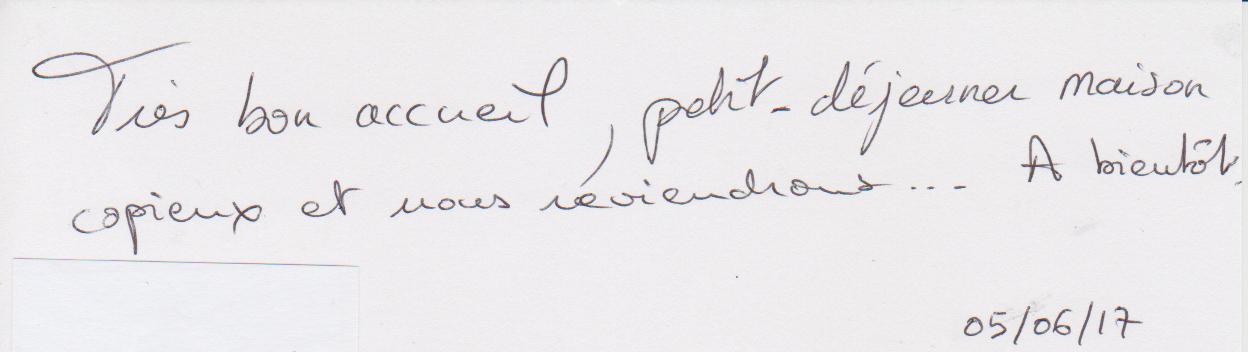 Très bon accueil, petit-déjeuner maison
copieux et nous reviendrons... A bientôt.
05/06/17